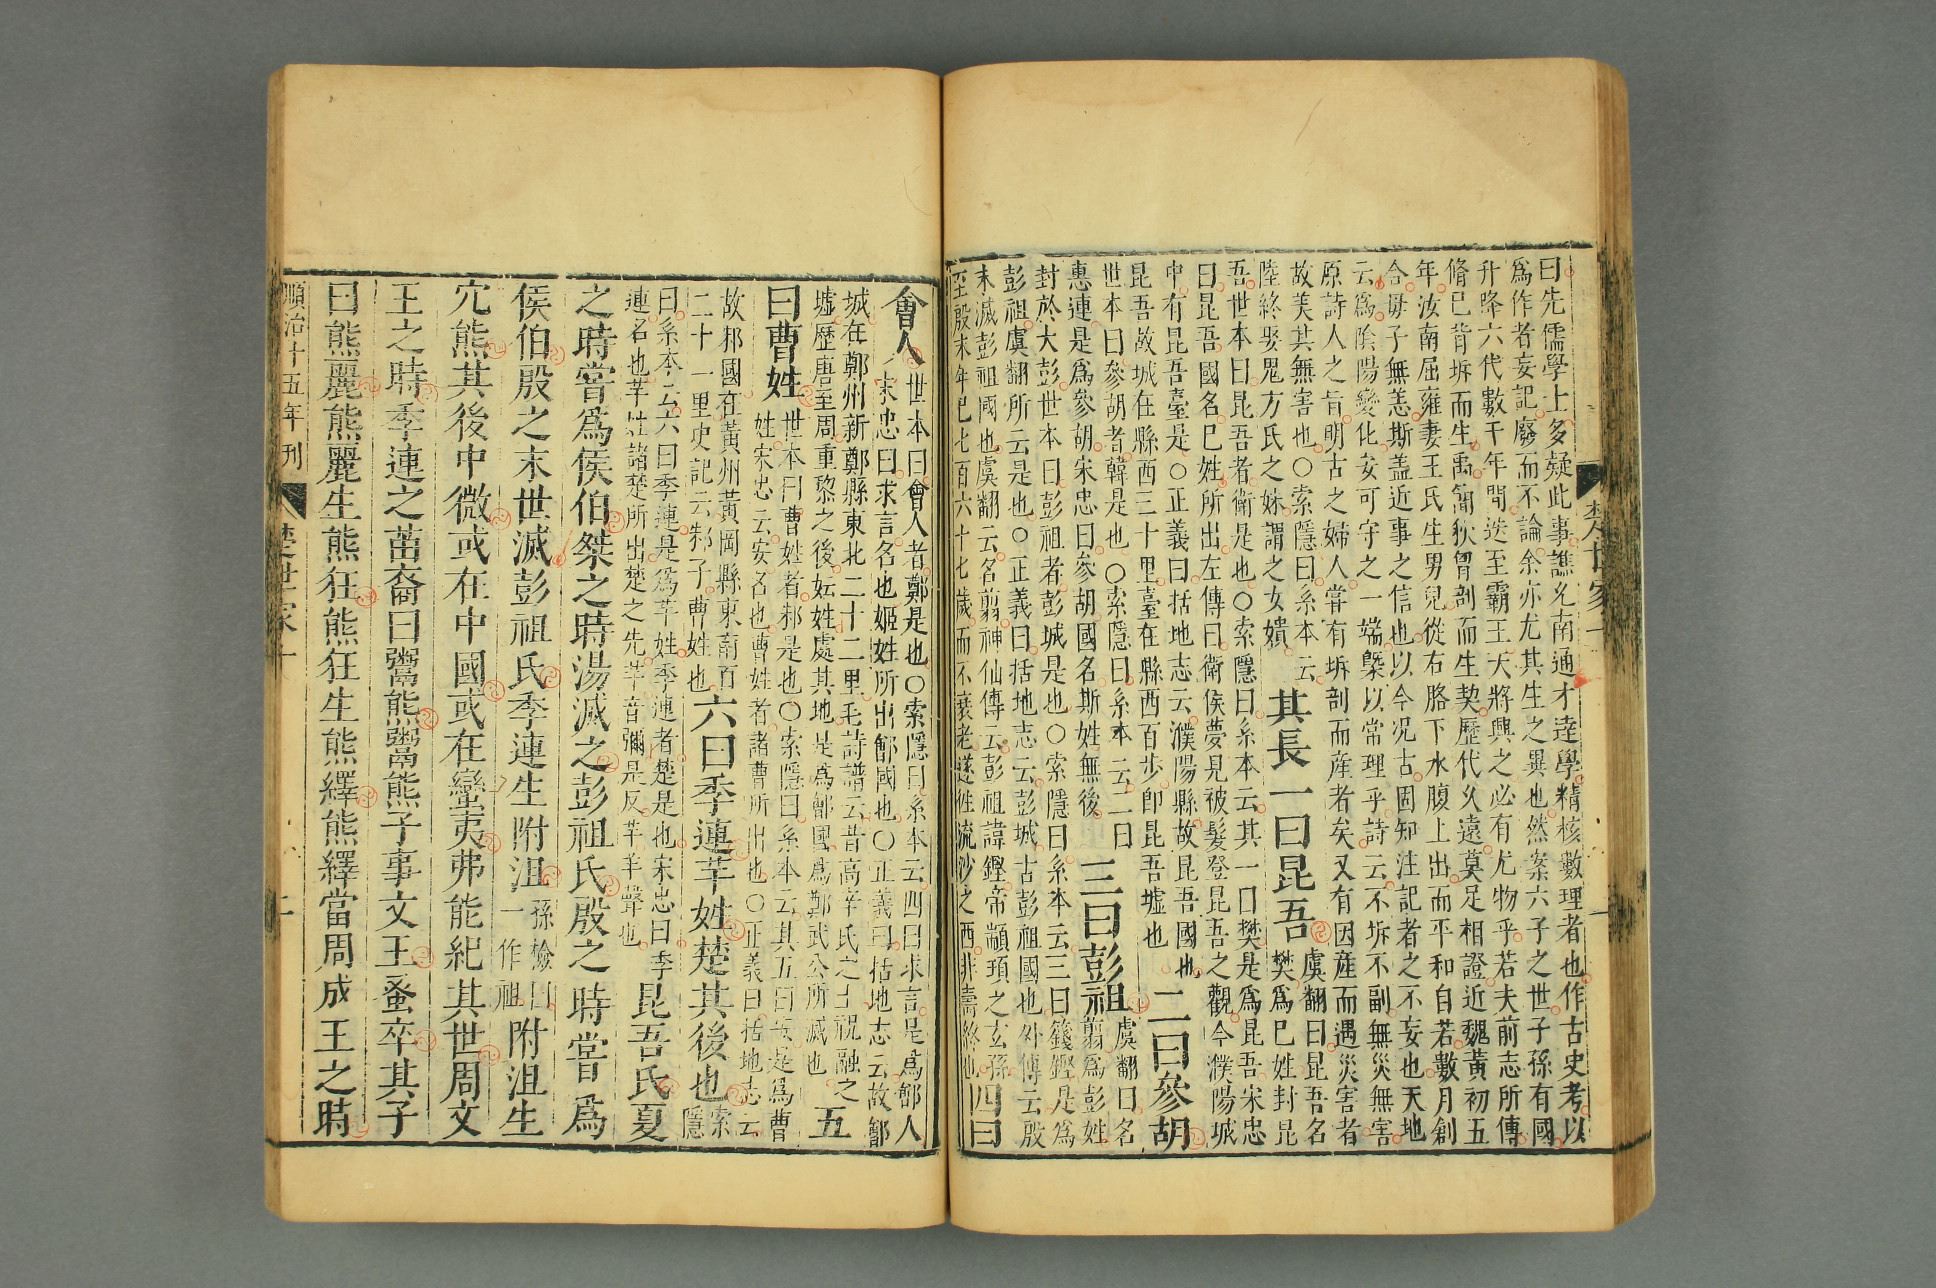 曰先儒學士多疑此事譙允南通才達學精核數理者也作古史考以
爲作者妄記廢而不論余亦尤其生之異也然案六子之世子孫有國
升降六代數千年間迭至霸王天將興之必有尤物乎若夫前志所傳
脩已背坼而生禹簡狄胷剖而生契歷代久遠莫足相證近魏黃初五
年汝南屈雍妻王氏生男兒從右胳下水腹上出而平和自若數月創
合母子無恙斯盖近事之信也以今况古固知注記者之不妄也天地
云爲陰陽變化安可守之一端槩以常理乎詩云不坼不副無災無害
原詩人之旨明古之婦人甞有坼剖而產者矣又有因產而遇災害者
故美其無害也○索隱曰系本云
陸終娶鬼方氏之妹謂之女嬇
其長一曰昆吾
虞翻曰昆吾名
樊爲巳姓封昆
吾世本曰昆吾者衛是也○索隱曰系本云其一曰樊是爲昆吾宋忠
曰昆吾國名巳姓所出左傳曰衛侯夢見被髮登昆吾之觀今濮陽城
中有昆吾臺是○正義曰括地志云濮陽縣故昆吾國也
昆吾故城在縣西三十里臺在縣西百步卽昆吾墟也
二曰參胡
世本曰參胡者韓是也○索隱曰系本云二曰
惠連是爲參胡宋忠曰參胡國名斯姓無後
三曰彭祖
虞翻曰名
翦爲彭姓
封於大彭世本曰彭祖者彭城是也○索隱曰系本云三曰籛鏗是爲
彭祖虞翻所云是也○正義曰括地志云彭城古彭祖國也外傳云殷
末滅彭祖國也虞翻云名翦神仙傳云彭祖諱鏗帝顓頊之玄孫
至殷末年已七百六十七歲而不衰老遂徃流沙之西非壽終也
四曰
楚世家
會人
世本曰會人者鄭是也○索隱曰系本云四曰求言是爲鄶人
宋忠曰求言名也姬姓所出鄶國也○正義曰括地志云故鄶
城在鄭州新鄭縣東北二十二里毛詩譜云昔高辛氏之土祝融之
墟歷唐至周重黎之後妘姓處其地是爲鄶國爲鄭武公所滅也
五
曰曹姓
世本曰曹姓者邾是也○索隱曰系本云其五曰安是爲曹
姓宋忠云安名也曹姓者諸曹所出也○正義曰括地志云
故邾國在黃州黃岡縣東南百
二十一里史記云邾子曹姓也
六曰季連芈姓楚其後也
索
隱
曰系本云六曰季連是爲芈姓季連者楚是也宋忠曰季
連名也芈姓諸楚所出楚之先芈音彌是反芈羊聲也
昆吾氏夏
之時甞爲侯伯桀之時湯滅之彭祖氏殷之時甞爲
侯伯殷之末世滅彭祖氏季連生附沮
孫檢曰
一作祖
附沮生
穴熊其後中微或在中國或在蠻夷弗能紀其世周文
王之時季連之苗裔曰鬻熊鬻熊子事文王蚤卒其子
曰熊麗熊麗生熊狂熊狂生熊繹熊繹當周成王之時
順治十五年刊
楚世家